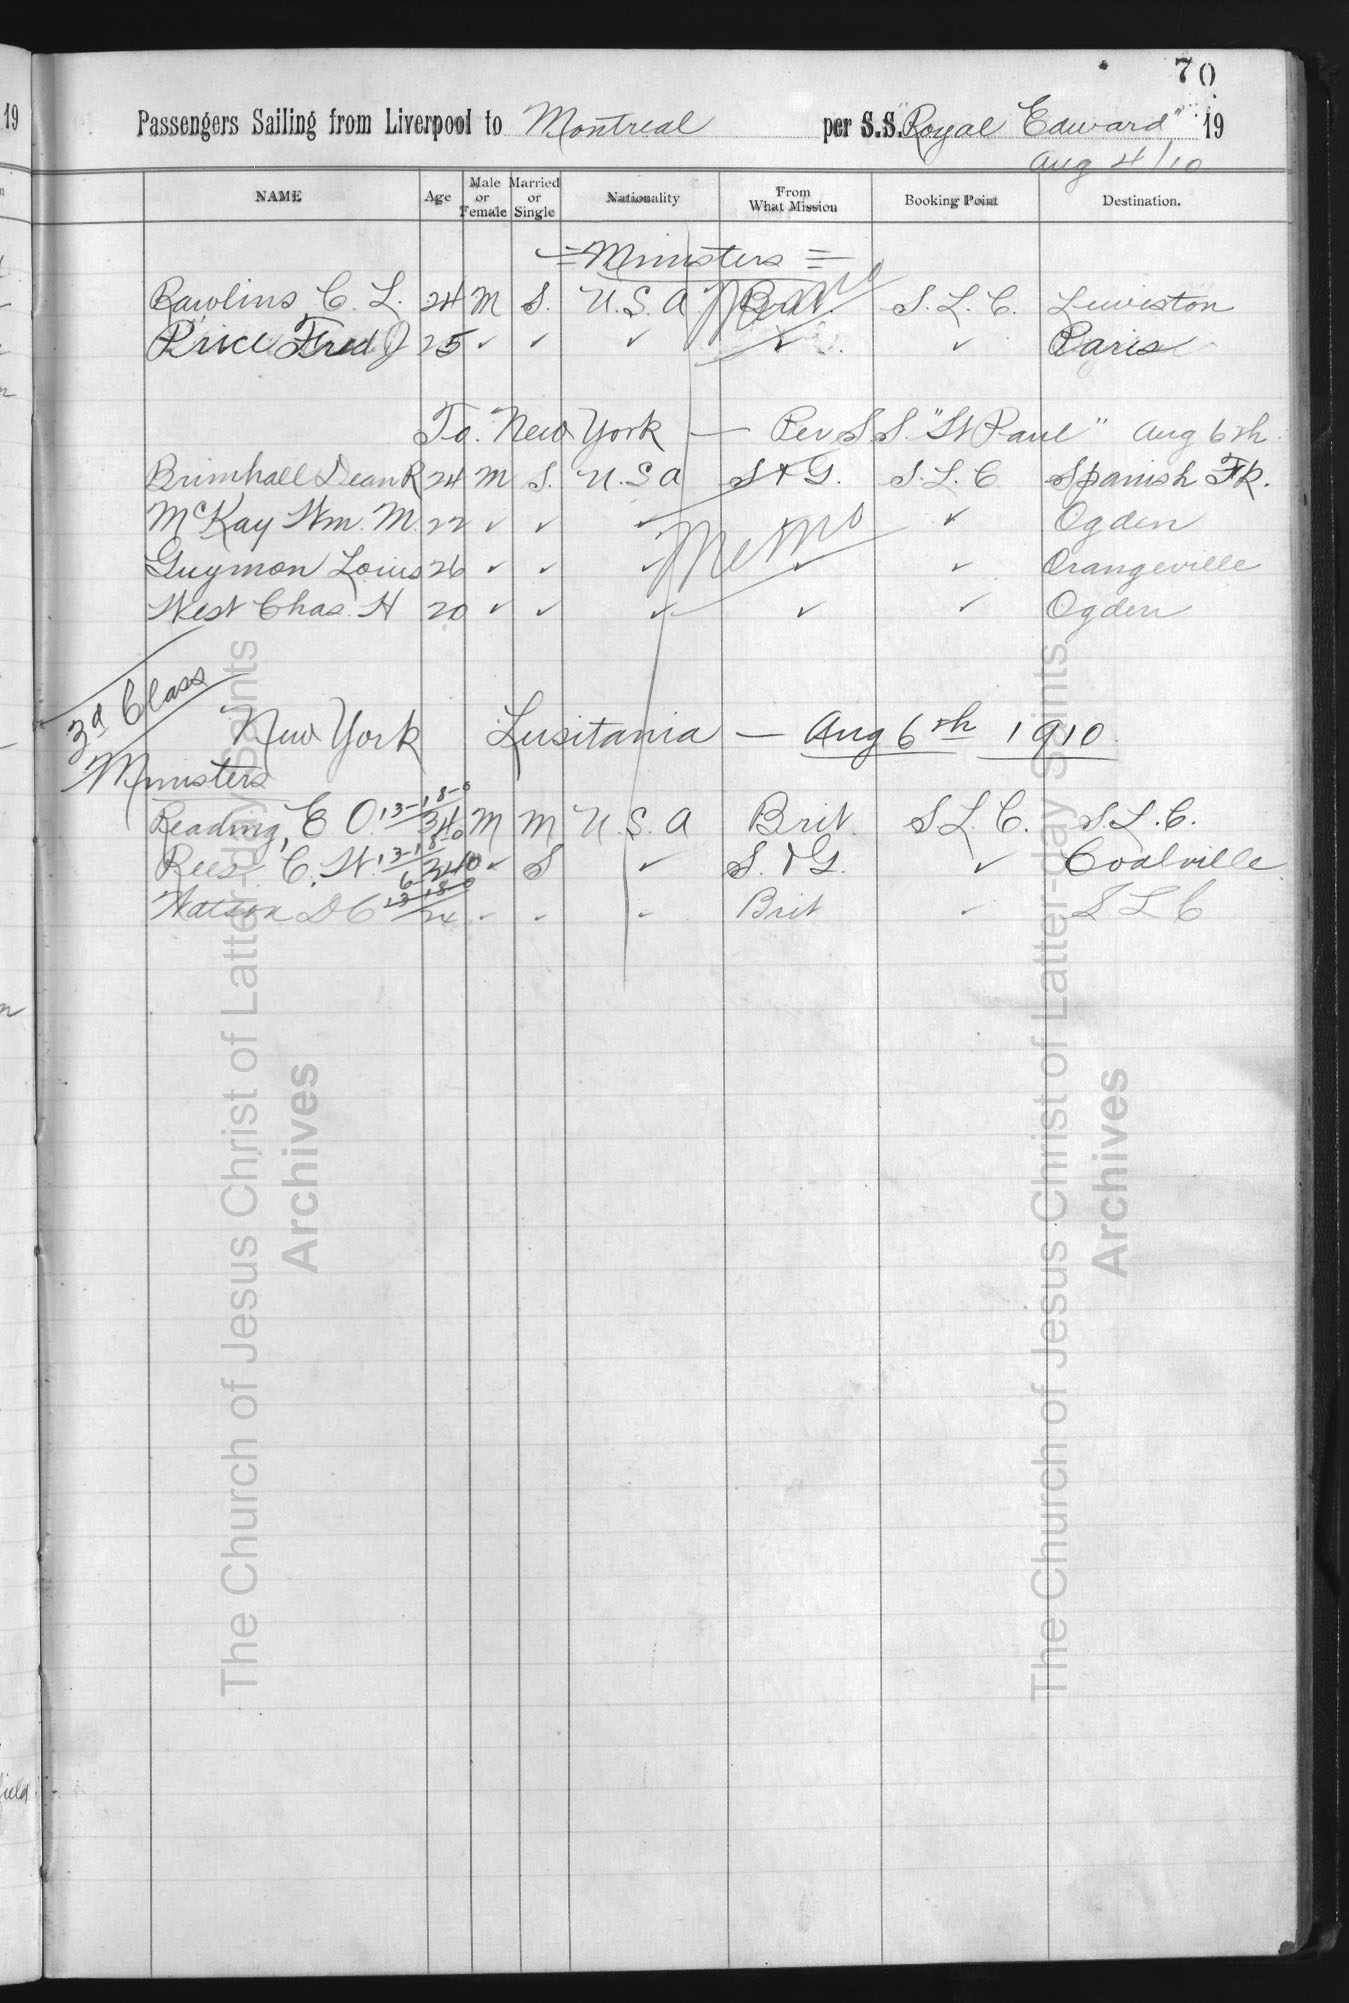 70
19
Passengers Sailing from Liverpool to Montreal per S.S. "Royal Edward" 19
Aug 4/10
NAME Age Male or Female Married or Single Nationality From What Mission Booking Point Destination.
= Ministers =
Rawlins C. L. 24 M S. U.S.A Brit. S.L.C. Lewiston
Price Fred J 25 ✓ ✓ ✓ ✓ ✓ Paris
Memo
To New York — Per S.S. "St Paul" Aug 6th
Brimhall Dean R 24 M S. U.S.A S & G. S.L.C. Spanish Fk.
McKay Wm. M. 22 ✓ ✓ ✓ ✓ Ogden
Memo
Guymon Louis 26 ✓ ✓ ✓ ✓ ✓ Orangeville
West Chas. H 20 ✓ ✓ ✓ ✓ ✓ Ogden
3d Class
New York Lusitania — Aug 6th 1910.
Ministers
Reading, E O. 13-18-0 34 M M U.S.A Brit. S.L.C. S.L.C.
Rees. C. W. 13-18- 24 ✓ S ✓ S. & G. ✓ Coalville
Watson D C 13 18 0 24 " " " Brit " S L C
field
The Church of Jesus Christ of Latter-day Saints
Archives
The Church of Jesus Christ of Latter-day Saints
Archives